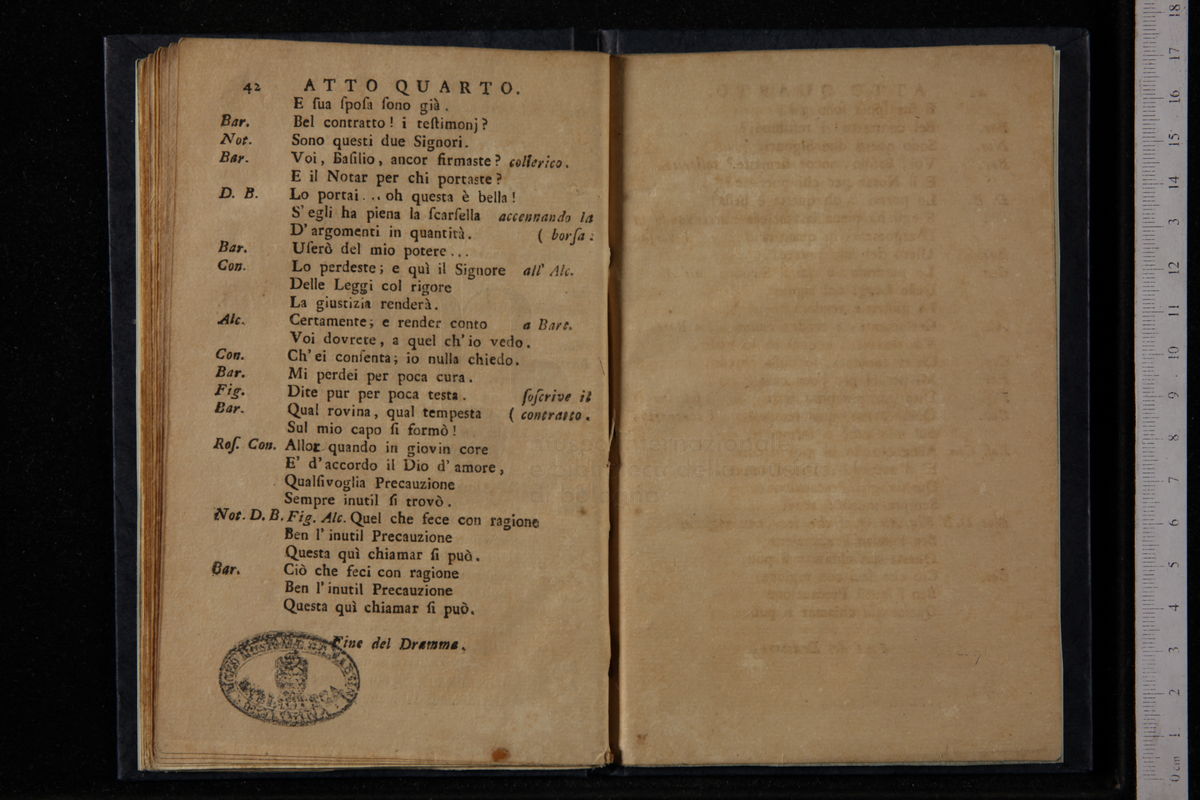 42 ATTO QUARTO.
E ſua ſpoſa ſono già.
Bar. Bel contratto! i teſtimonj?
Not. Sono questi due Signori.
Bar. Voi, Baſilio, ancor firmaste? collerico.
E il Notar per chi portaste?
D. B. Lo portai... oh questa è bella!
S'egli ha piena la ſcarſella accennando la
D'argomenti in quantità. ( borſa.
Bar. Uſerò del mio potere...
Con. Lo perdeste; e quì il Signore all' Alc.
Delle Leggi col rigore
La giustizia renderà.
Alc. Certamente; e render conto a Bart.
Voi dovrete, a quel ch'io vedo.
Con. Ch'ei conſenta; io nulla chiedo.
Bar. Mi perdei per poca cura.
Fig. Dite pur per poca testa. ſoſcrive il
Bar. Qual rovina, qual tempesta ( contratto.
Sul mio capo ſi formò!
Roſ. Con. Allor quando in giovin core
E' d'accordo il Dio d'amore,
Qualſivoglia Precauzione
Sempre inutil ſi trovò.
Not. D. B. Fig. Alc. Quel che fece con ragione
Ben l'inutil Precauzione
Questa quì chiamar ſi può.
Bar. Ciò che feci con ragione
Ben l'inutil Precauzione
Questa quì chiamar ſi può.
Fine del Dramma.
BIBLIOTECA
0 cm 1 2 3 4 5 6 7 8 9 10 11 12 13 14 15 16 17 18